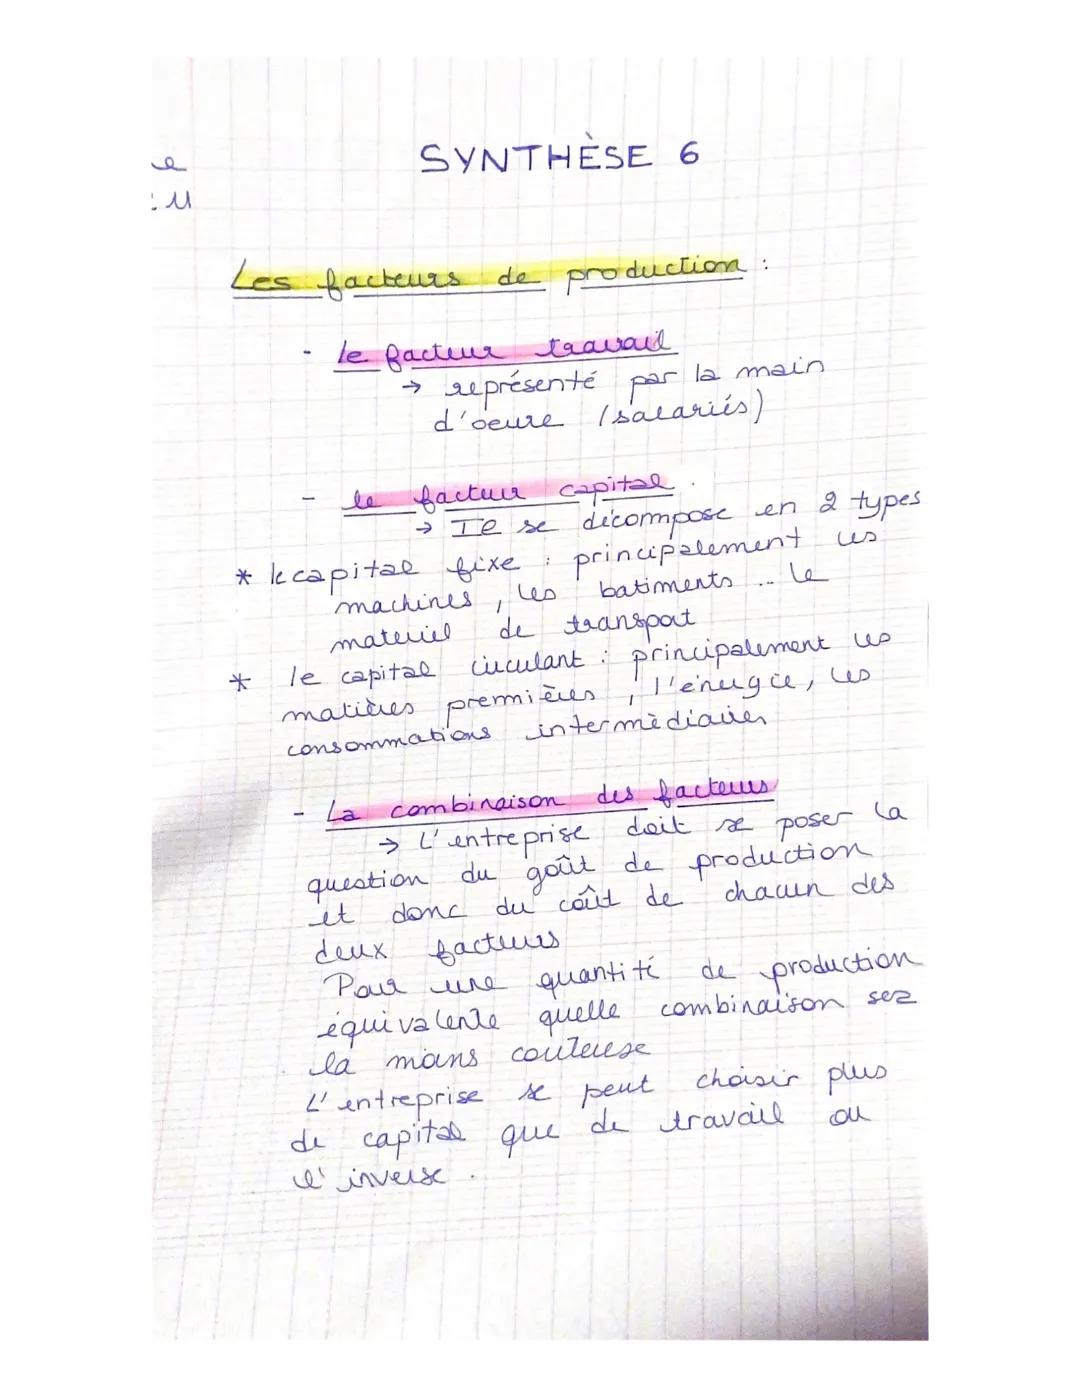 SYNTHÈSE 6
e
: u
Les facteurs de production :
- le facteur travail
→ représenté par la main
d'oeure (salariés)
- le facteur capital.
→ Il se décompose en 2 types
* le capital fixe : principalement les
machines, les batiments ... le
materiel de transport
* le capital circulant : principalement les
matières premières, l'énergie, les
consommations intermèdiaires
- La combinaison des facteurs
→ L'entreprise doit se poser la
question du goût de production
et donc du coût de chacun des
deux facteurs
Pour une quantité de production
équivalente quelle combinaison sera
la moins couteuse
L'entreprise se peut choisir plus
de capital que de travail ou
l'inverse.